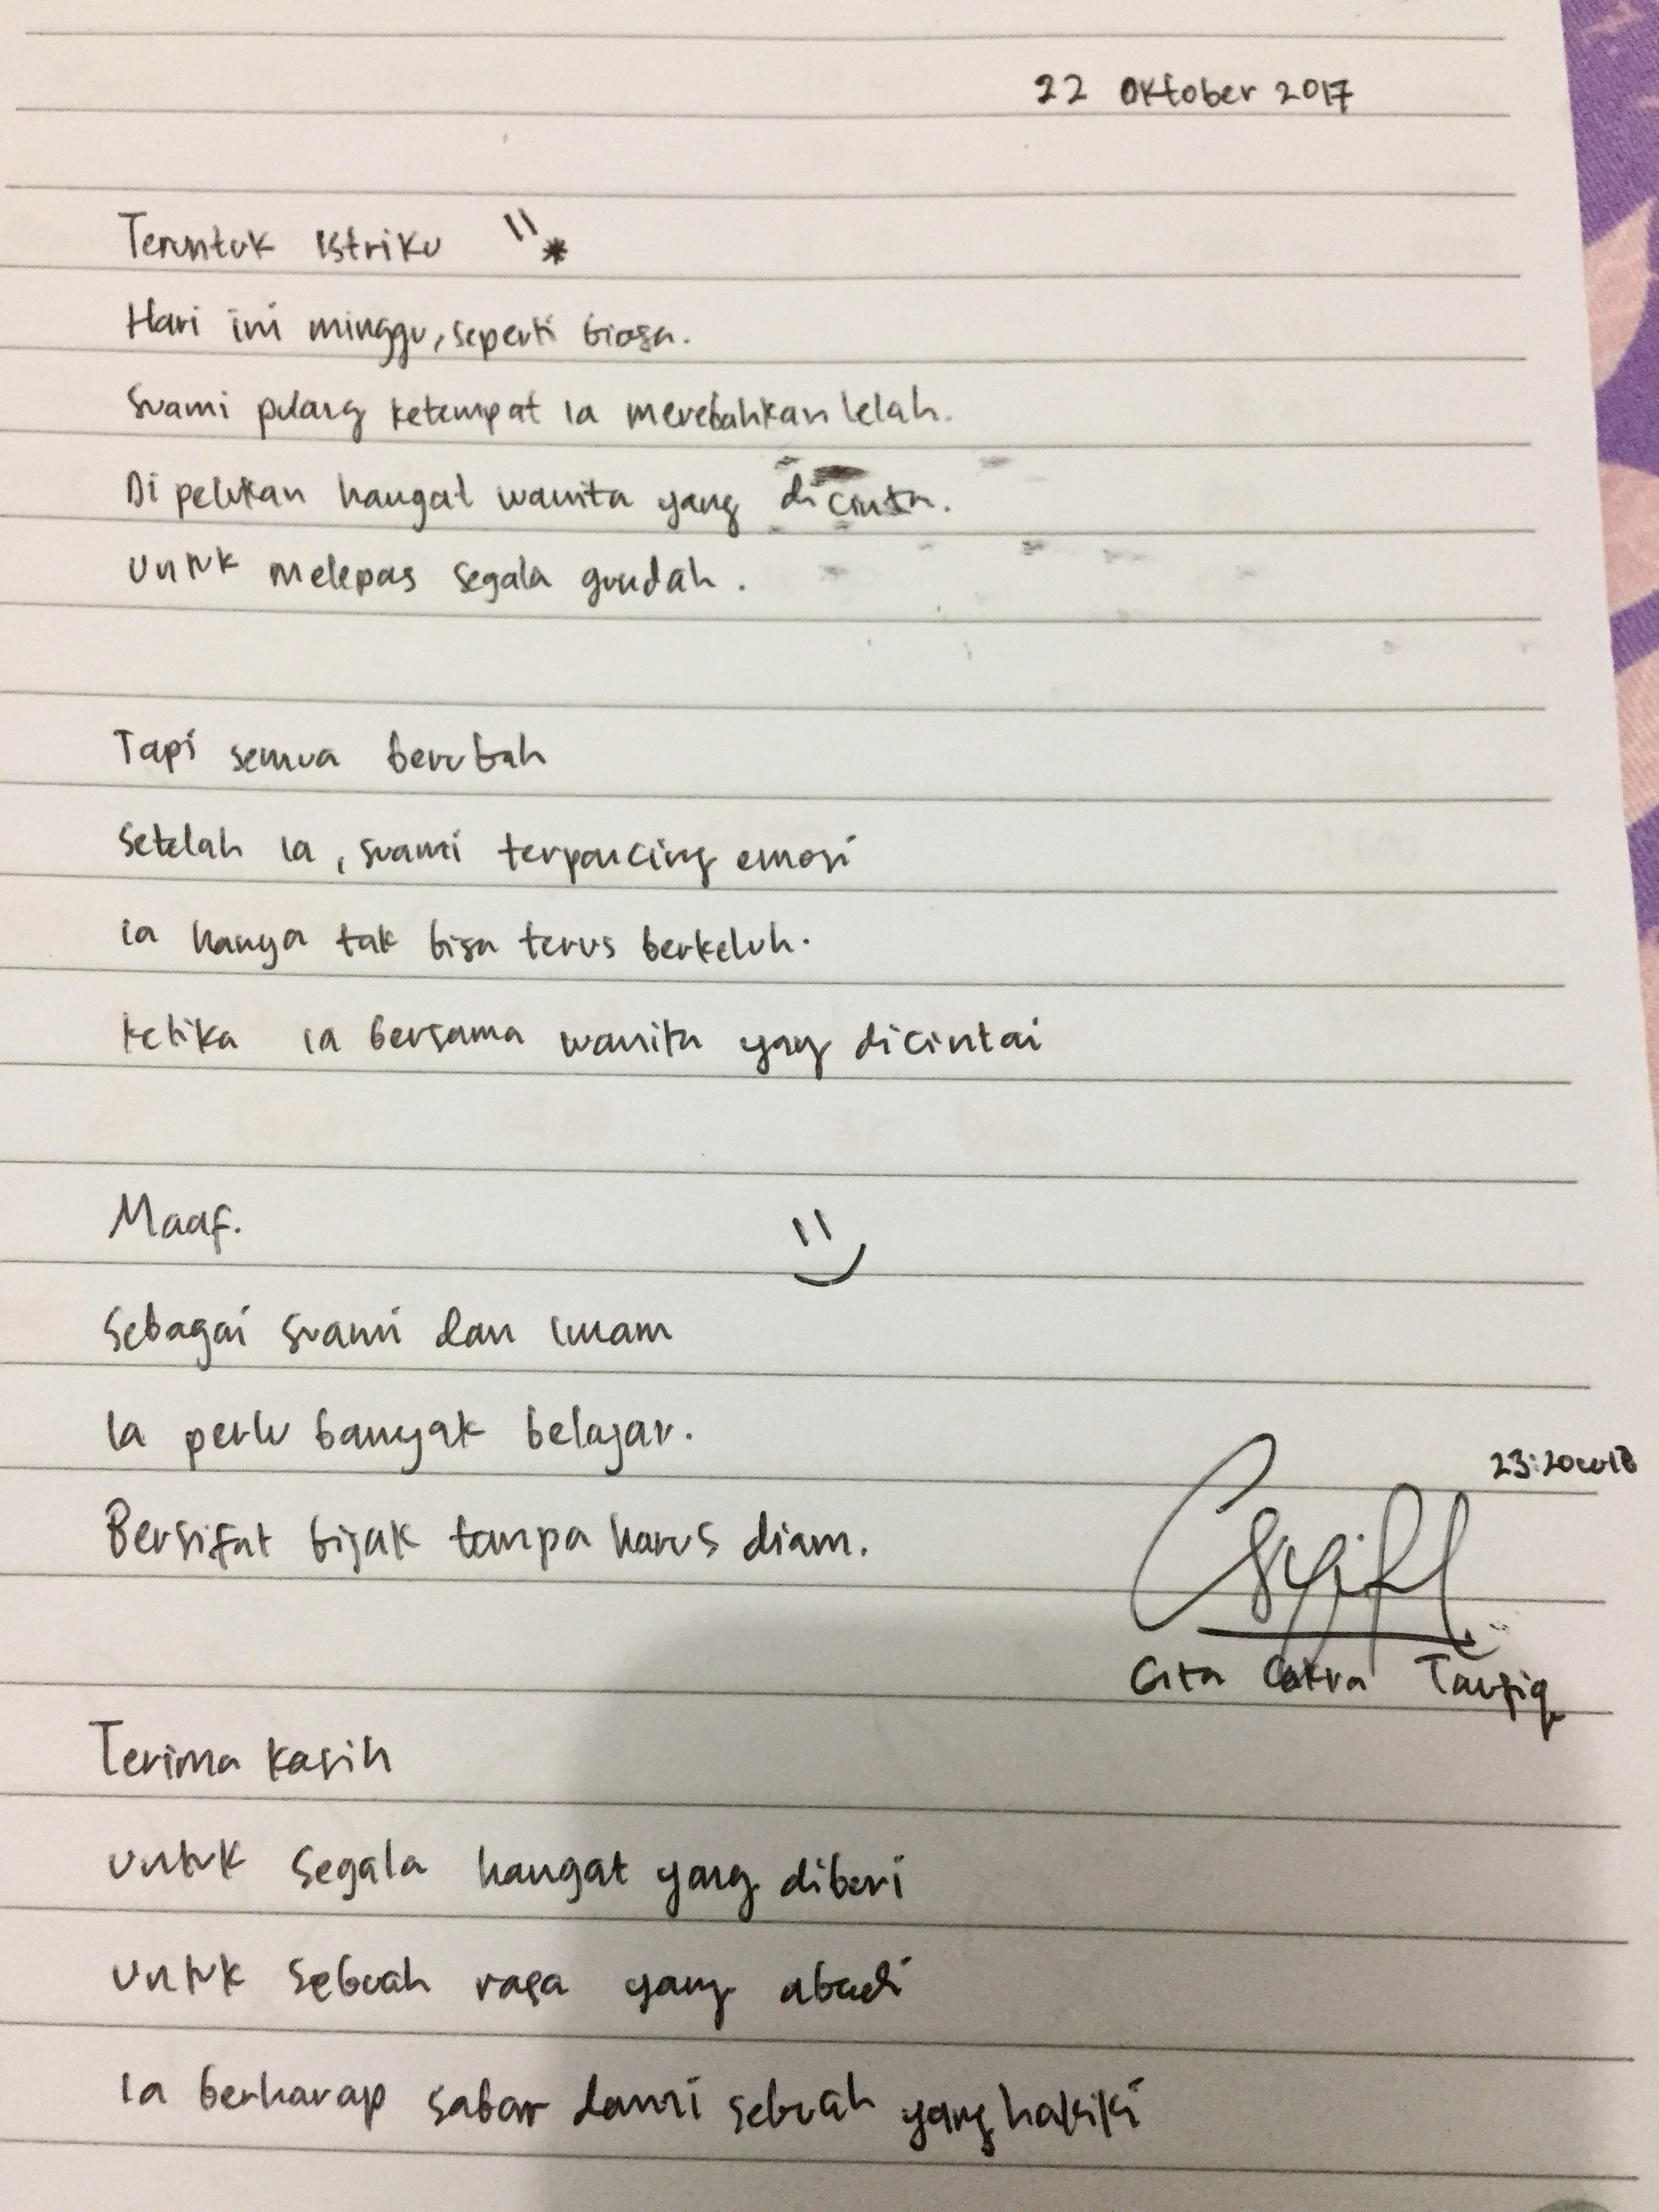 22 Oktober 2017
Teruntuk istriku
Hari ini minggu, seperti biasa.
Suami pulang ketempat ia merebahkan lelah.
Di pelukan hangat wanita yang dicinta.
Untuk melepas segala gundah.
Tapi semua berubah
Setelah ia, suami terpancing emosi
ia hanya tak bisa terus berkeluh.
ketika ia bersama wanita yang dicintai
Maaf.
Sebagai suami dan imam
Ia perlu banyak belajar.
Bersifat bijak tanpa harus diam.
23:20 WIB
Gita Cakra Taufiq
Terima kasih
untuk segala hangat yang diberi
untuk sebuah rasa yang abadi
Ia berharap sabar demi sebuah yang hakiki